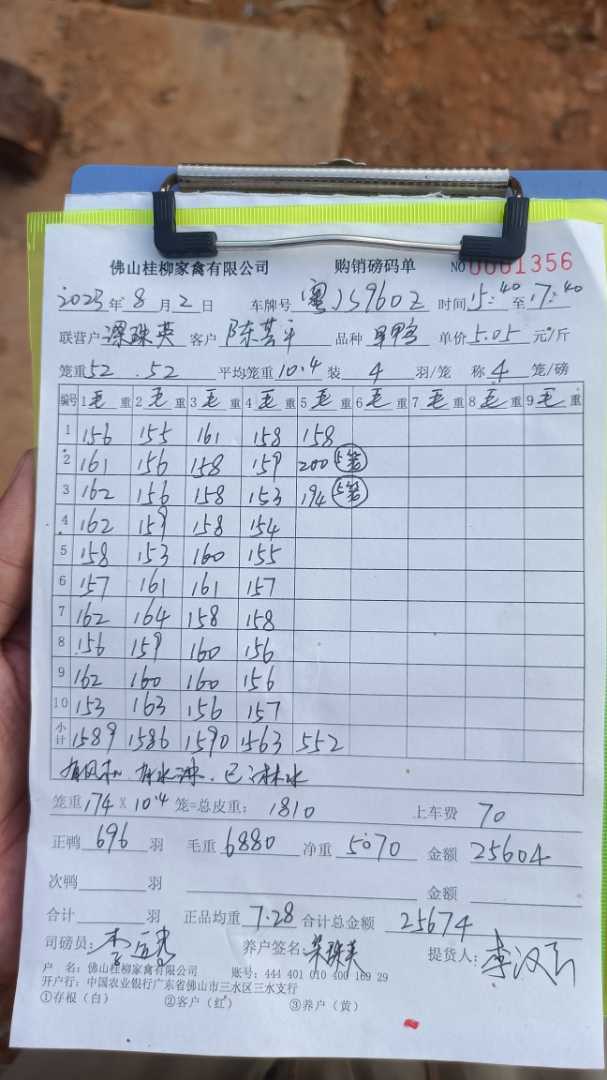 佛山桂柳家禽有限公司 购销磅码单 NO 0001356
2023年 8月 2日 车牌号 粤JS960Z 时间 15:40 至 17:40
联营户 梁珠英 客户 陈 平 品种 鸭 单价 5.05 元/斤
笼重 52 . 52 平均笼重 10.4 装 4 羽/笼 称 4 笼/磅
编号 1 毛重 2 毛重 3 毛重 4 毛重 5 毛重 6 毛重 7 毛重 8 毛重 9 毛重
1 156 155 161 158 158
2 161 156 158 159 200 5笼
3 162 156 158 153 194 5笼
4 162 159 158 154
5 158 153 160 155
6 157 161 161 157
7 162 164 158 158
8 156 159 160 156
9 162 160 160 156
10 153 163 156 157
小计 1589 1586 1590 1563 552
有风机. 有水淋. 已淋水
笼重 174 X 10.4 笼=总皮重: 1810 上车费 70
正鸭 696 羽 毛重 6880 净重 5070 金额 25604
次鸭 羽 金额
合计 羽 正品均重 7.28 合计总金额 25674
司磅员: 李 养户签名: 梁珠英 提货人: 李汉
户 名: 佛山桂柳家禽有限公司 账号: 444 401 010 400 169 29
开户行: 中国农业银行广东省佛山市三水区三水支行
①存根（白） ②客户（红） ③养户（黄）